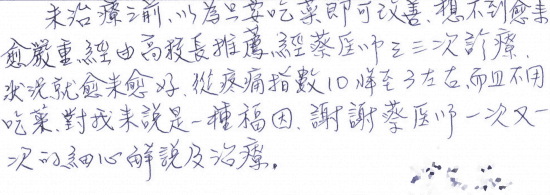 未治療之前,以為只要吃藥即可改善,想不到愈來
愈嚴重,經由高校長推薦,經蔡医师之三次診療,
狀況就愈來愈好,從疼痛指數10降至3左右,而且不用
吃藥,對我來說是一種福因,謝謝蔡医师一次又一
次的細心解說及治療。